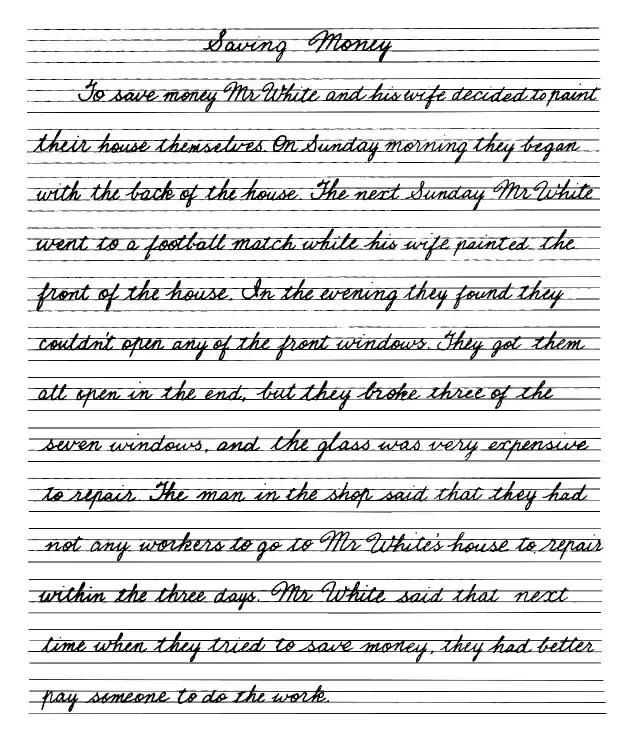 Saving Money
To save money Mr White and his wife decided to paint
their house themselves. On Sunday morning they began
with the back of the house. The next Sunday Mr White
went to a football match while his wife painted the
front of the house. In the evening they found they
couldn't open any of the front windows. They got them
all open in the end, but they broke three of the
seven windows, and the glass was very expensive
to repair. The man in the shop said that they had
not any workers to go to Mr White's house to repair
within the three days. Mr White said that next
time when they tried to save money, they had better
pay someone to do the work.